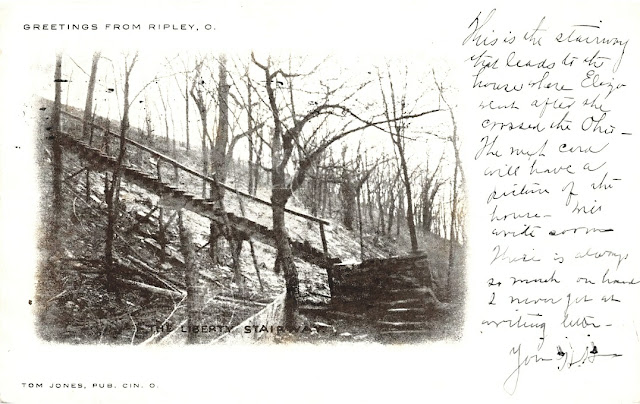 GREETINGS FROM RIPLEY, O.
This is the stairway
that leads to the
house where Eliza
went after she
crossed the Ohio –
The next card
will have a
picture of the
house – Will
write soon
There is always
so much on hand
I never get at
writing letter –
Your
THE LIBERTY STAIRWAY
TOM JONES, PUB. CIN. O.